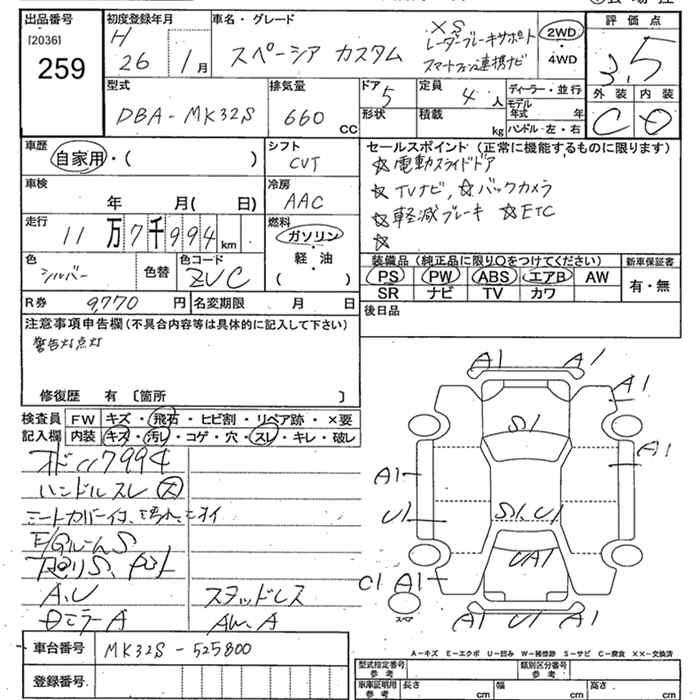 出品番号 初度登録年月 車名・グレード 評価点
120361 H XS
259 26 1月 スペーシア カスタム レーダーブレーキサポート 2WD 3.5
スマートフォン連携ナビ 4WD
型式 排気量 ドア 定員 ディーラー・並行 外装 内装
DBA-MK32S 660 CC 5 4人 モデル年式 年 C D
形状 積載 kg ハンドル・左・右
車歴 シフト セールスポイント (正常に機能するものに限ります)
自家用・( ) CVT ☆電動スライドドア
車検 冷房 ☆TVナビ、☆バックカメラ
年 月( 日) AAC ☆軽減ブレーキ ☆ETC
走行 燃料 ☆
11万7千994km ガソリン・軽・油 ( )
装備品 (純正品に限り○をつけてください) 新車保証書
色 色替 色コード PS PW ABS エアB AW 有・無
シルバー ZVC SR ナビ TV カワ
R券 9,770円 名変期限 月 日 後日品
注意事項申告欄 (不具合内容等は具体的に記入して下さい)
警告灯点灯
修復歴 有〔箇所 〕
検査員 FW キズ・飛石・ヒビ割・リペア跡・×要
記入欄 内装 キズ・汚レ・コゲ・穴・スレ・キレ・破レ
ハンドルスレ 大
A、U スタッドレス
A AW、A
A1 A1
A1
S1
A1
A1
U1 S1、U1
UA1
C1 A1
スペア
A1 U1 A1
A-キズ E-エクボ U-凹み W-補修跡 S-サビ C-腐食 ××-交換済
車台番号 MK32S-525800
型式指定番号 参考 類別区分番号 参考
登録番号
車庫証明用 参考 長さ cm 幅 cm 高さ cm